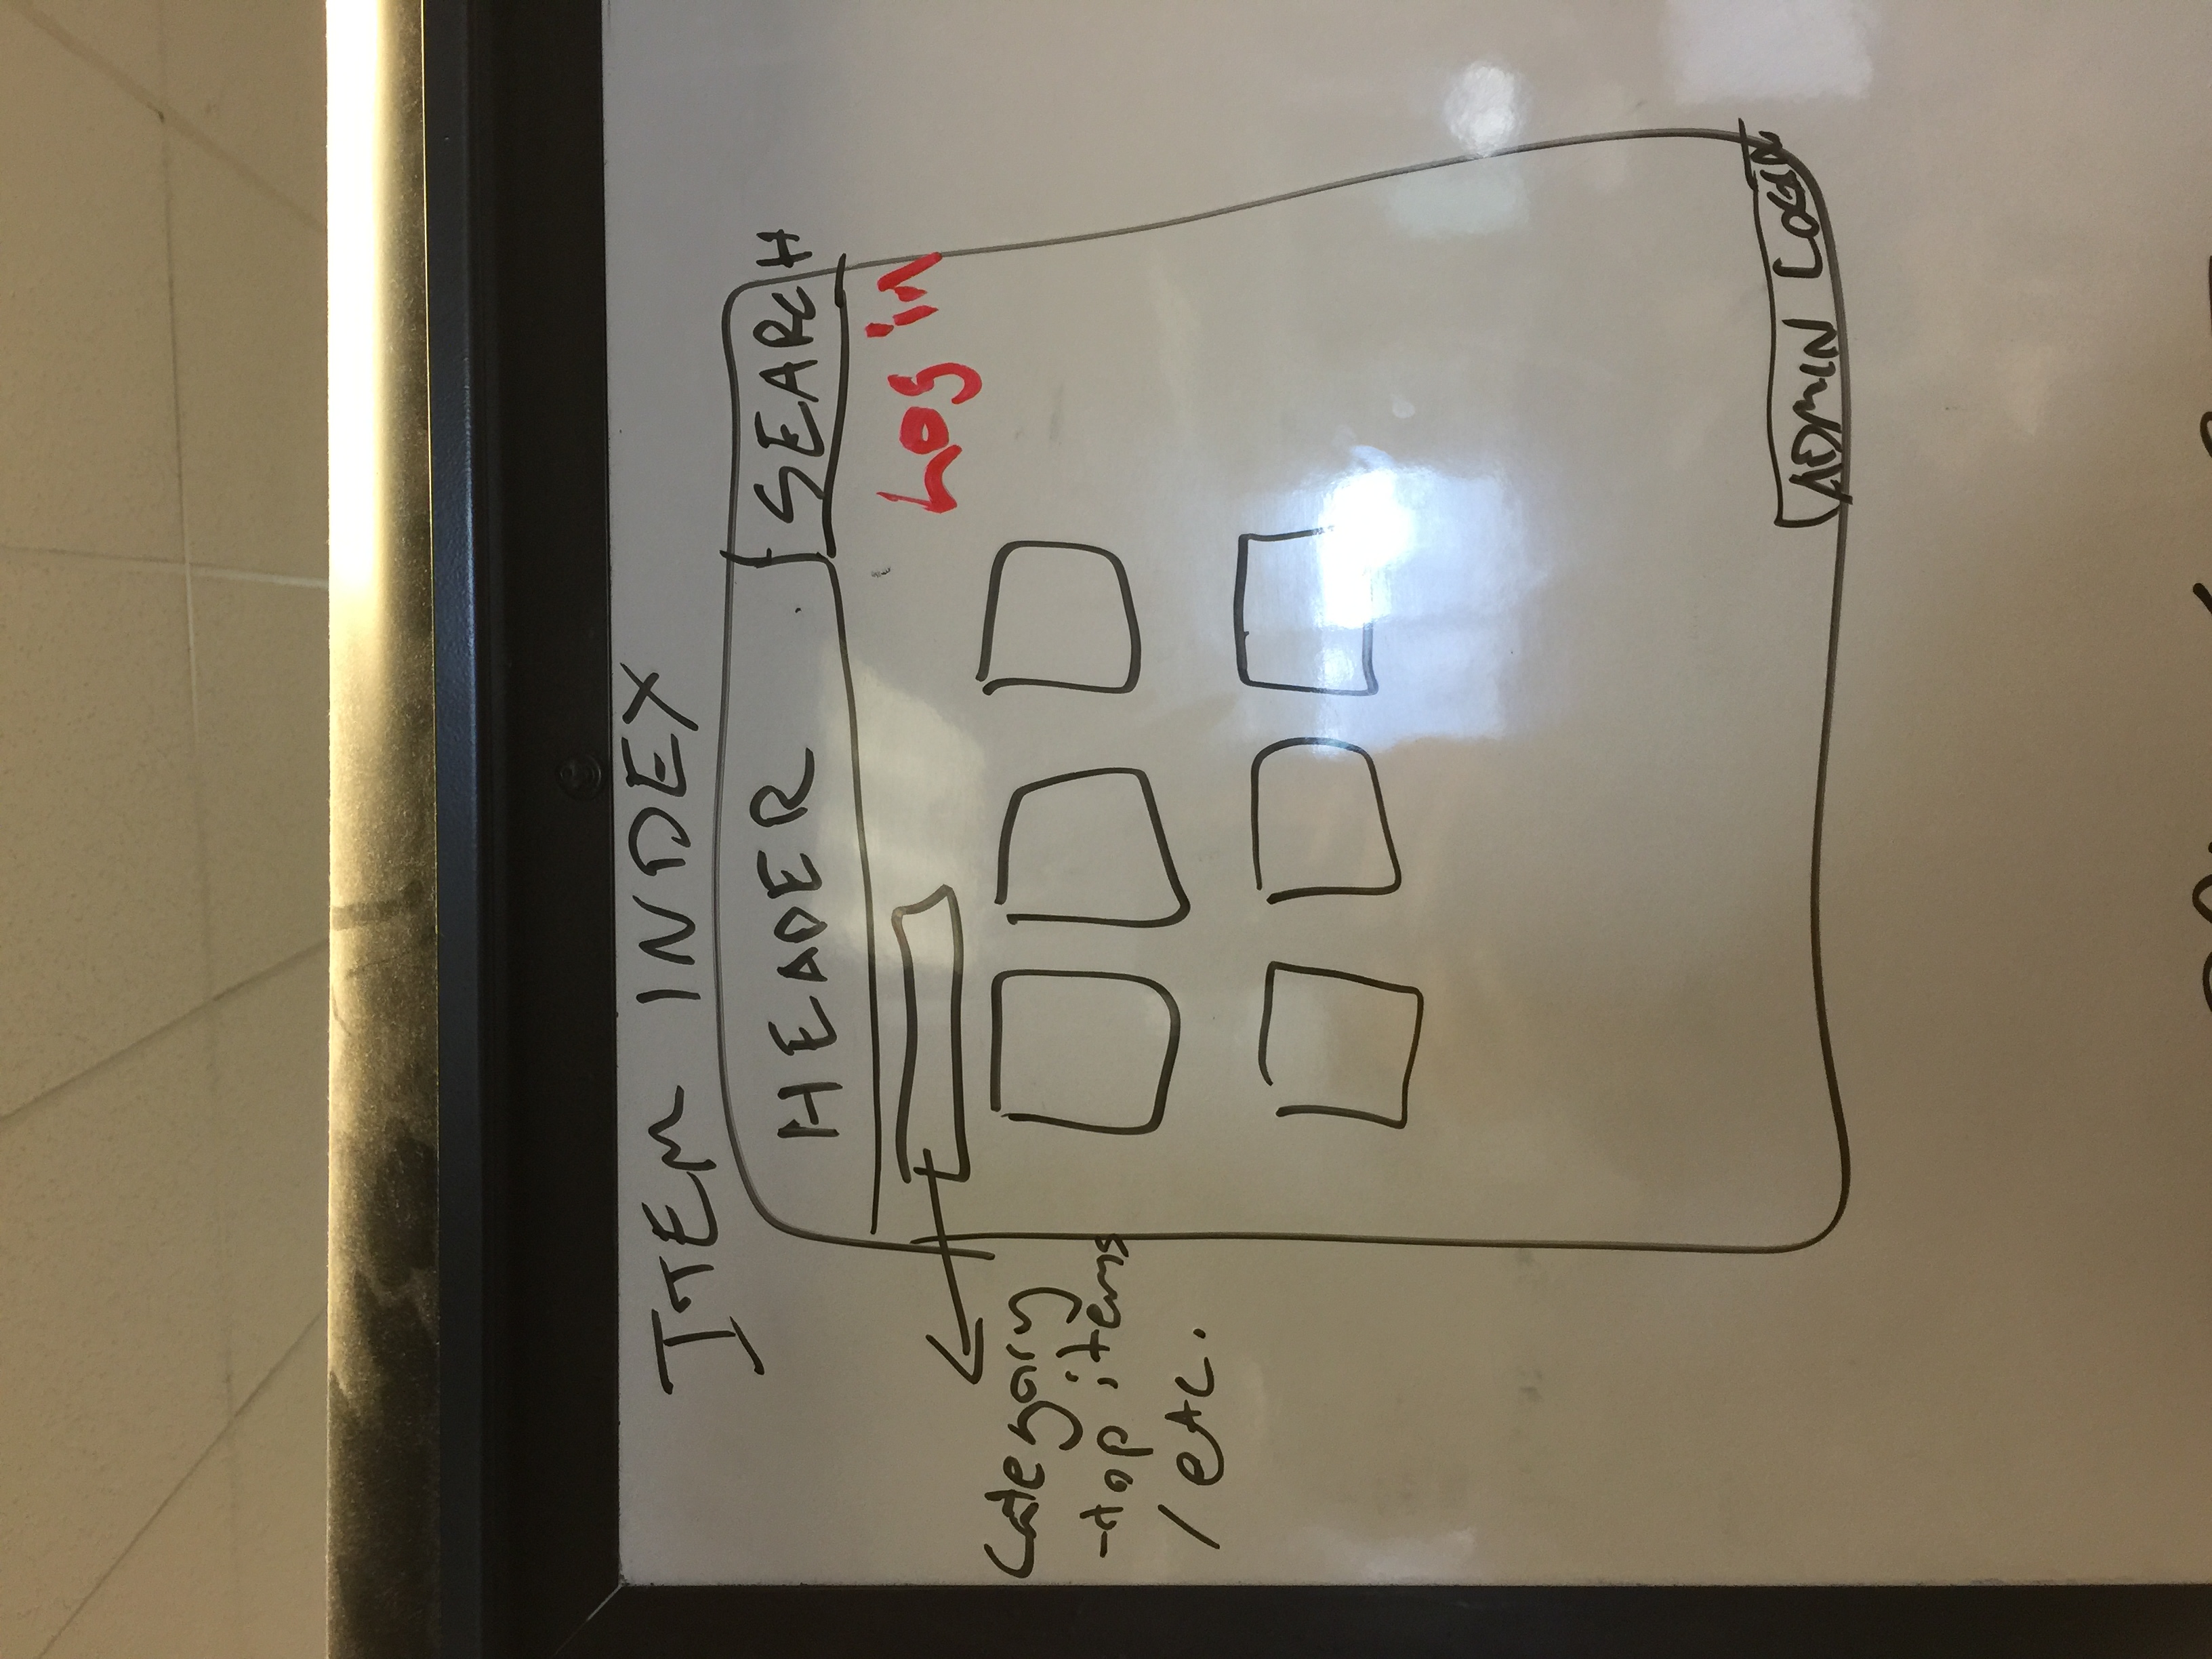 ITEM INDEX
HEADER
SEARCH
Log in
Category
-top items
/ etc.
ADMIN LOGIN